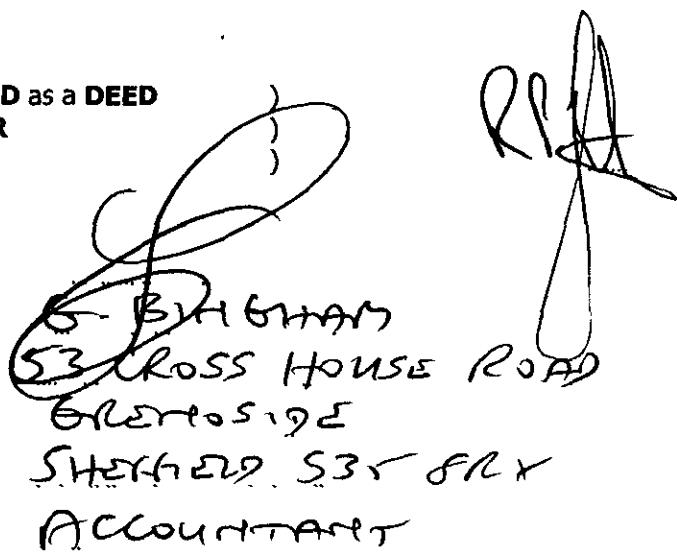 D as a DEED
R
)
)
)
G BINGHAM
53 CROSS HOUSE ROAD
GRENOSIDE
SHEFFIELD S35 8RX
ACCOUNTANT